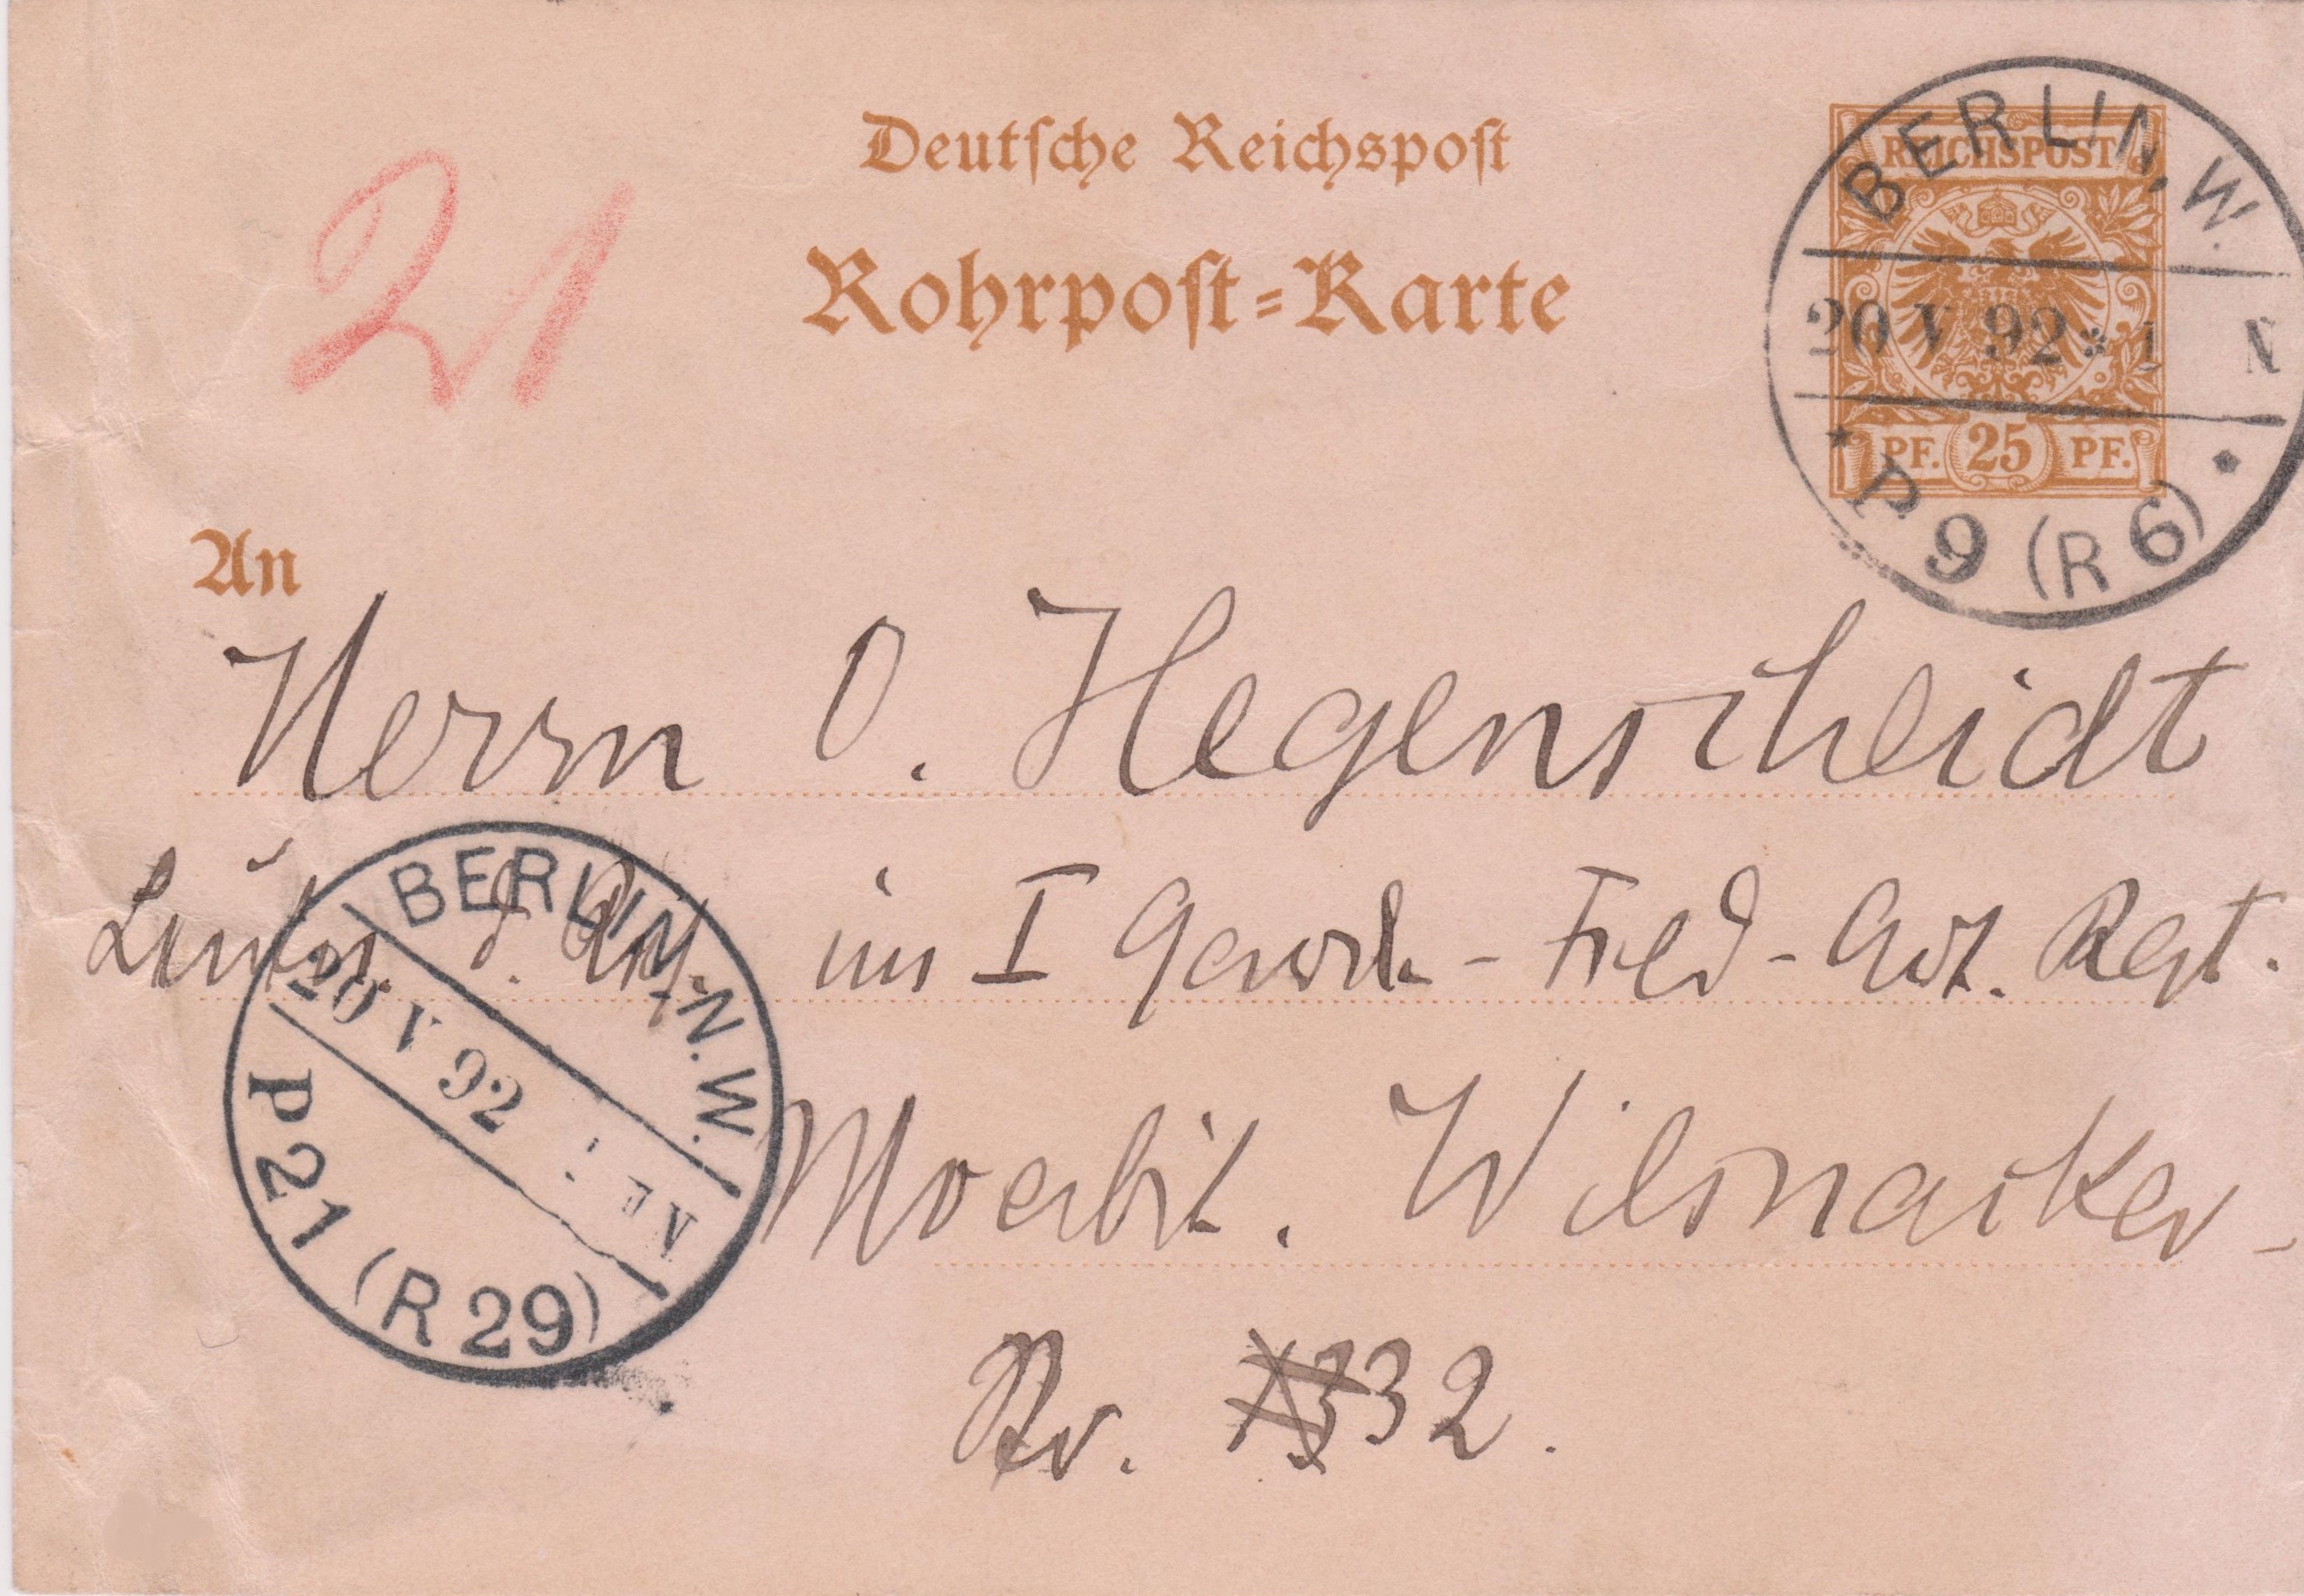 Deutsche Reichspost
Rohrpost-Karte
21
REICHSPOST
PF. 25 PF.
BERLIN, W.
20 V 92 * 1 N
P 9 (R 6)
An
Herrn O. Hegenscheidt
im I Garde-Feld-Art. Regt.
BERLIN, N.W.
20 V 92 N
P 21 (R 29)
Moabit. Wilsnacker-
Nr. 32.